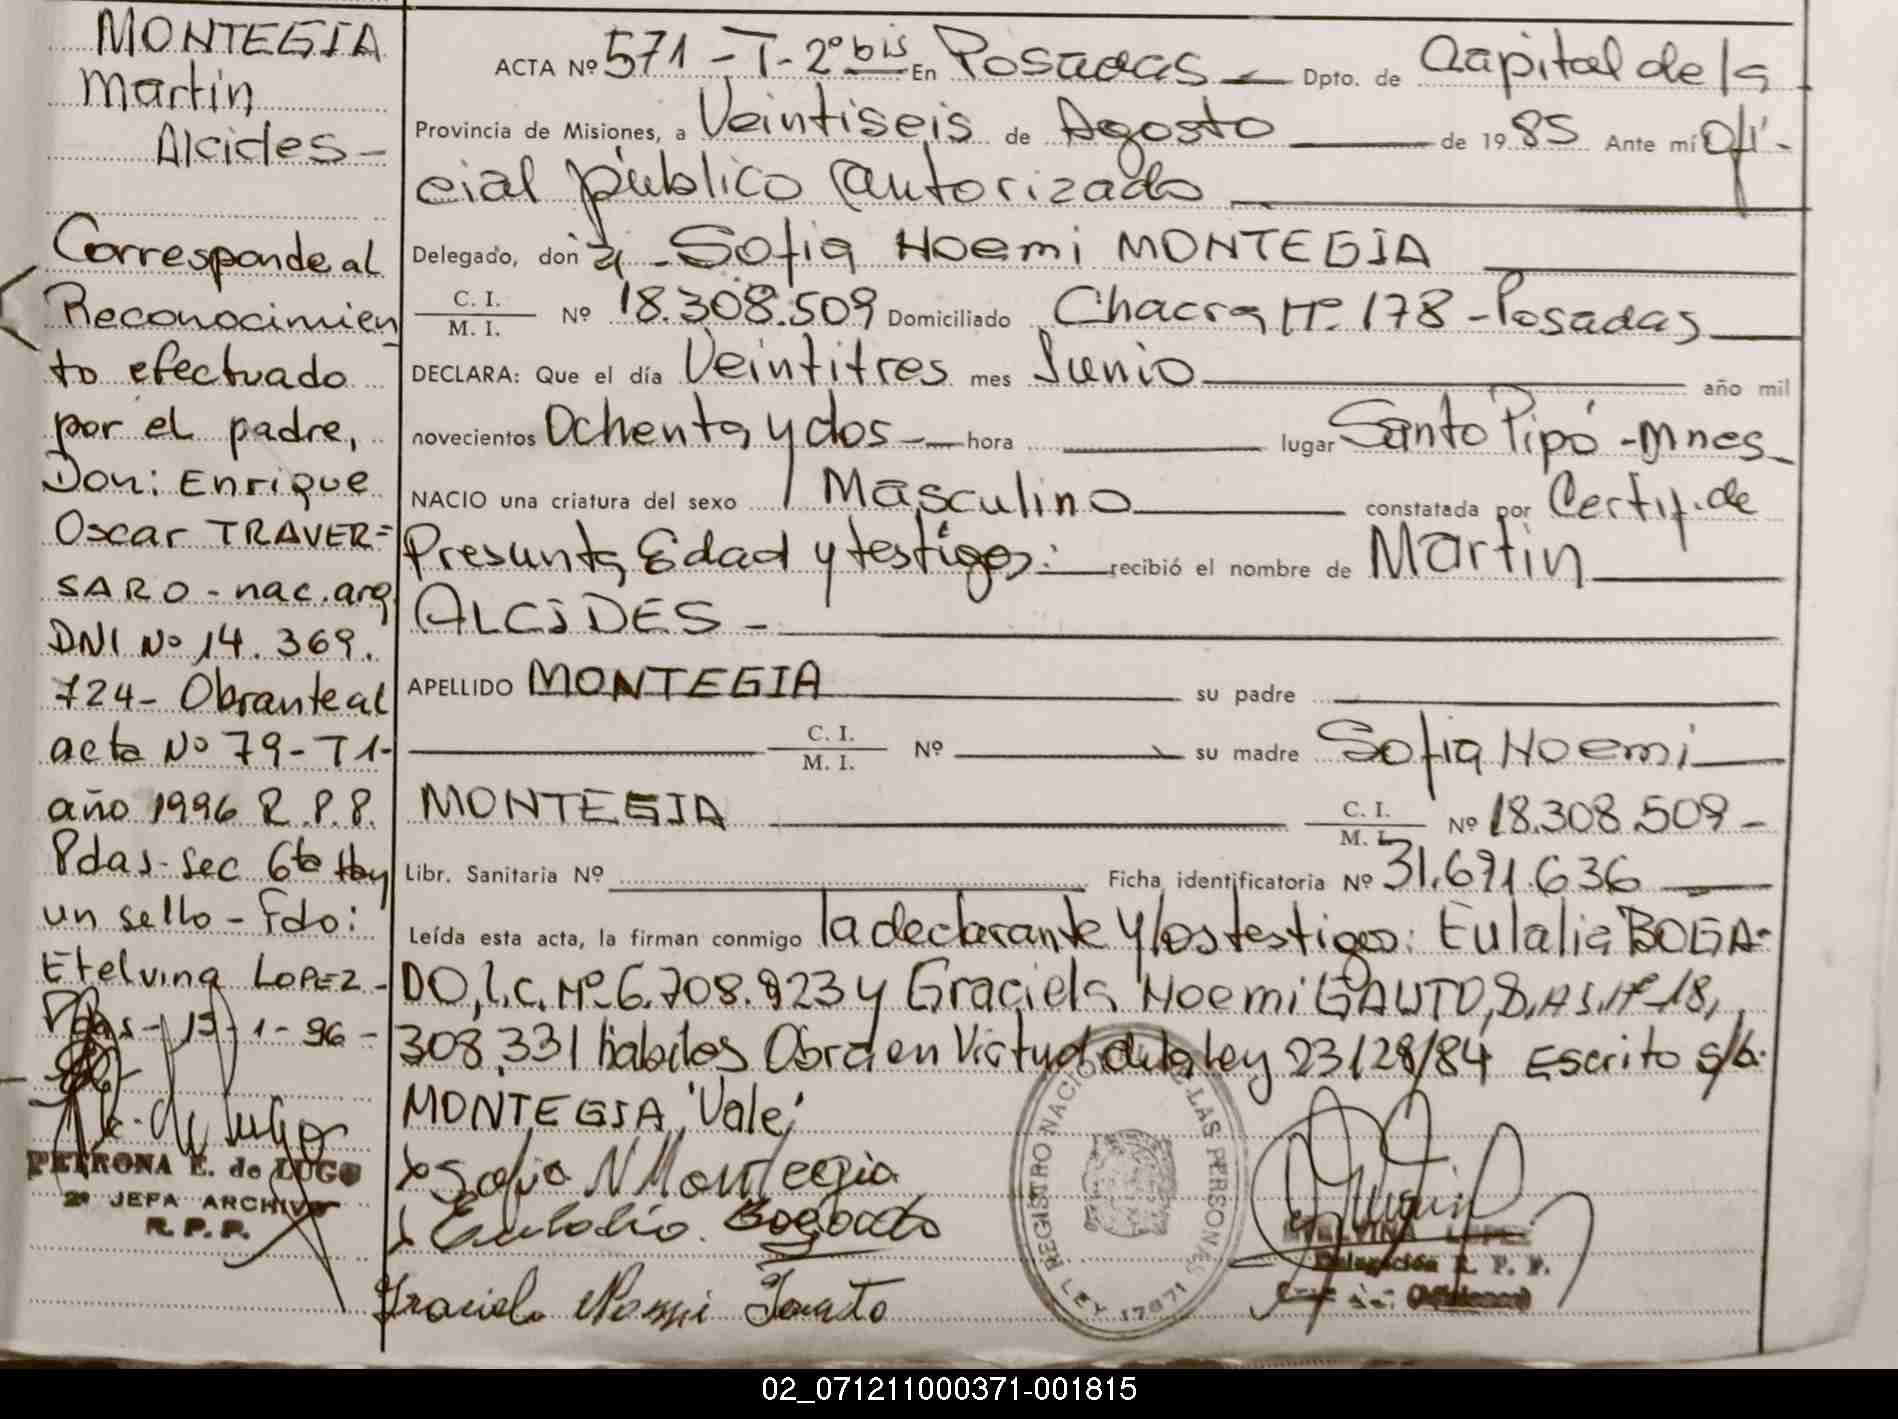 MONTEGIA
Martín
Alcides-
Corresponde al
Reconocimien
to efectuado
por el padre,
Don: Enrique
Oscar TRAVER=
SARO - nac. arg.
DNI Nº 14.369.
724- Obrante al
acta Nº 79-T1-
año 1996 R.P.P.
Pdas- Sec 6ta Hay
un sello - Fdo:
Etelvina LOPEZ-
Pdas- 15-1-96-
PETRONA E. de LUGO
2º JEFA ARCHIVO
R.P.P.
ACTA Nº 571 - T- 2º bis En Posadas Dpto. de Capital de la
Provincia de Misiones, a Veintiseis de Agosto de 1985 Ante mí Ofi-
cial público autorizado
Delegado, don a - Sofia Noemi MONTEGIA
C. I. / M. I. Nº 18.308.509 Domiciliado Chacra Nº 178 - Posadas
DECLARA: Que el día Veintitres mes Junio año mil
novecientos Ochenta y dos hora lugar Santo Pipó - Mnes
NACIO una criatura del sexo Masculino constatada por Certif. de
Presunta Edad y testigos: recibió el nombre de Martín
ALCIDES -
APELLIDO MONTEGIA su padre
C. I. / M. I. Nº su madre Sofia Noemi
MONTEGIA C. I. / M. I. Nº 18.308.509 -
Libr. Sanitaria Nº Ficha identificatoria Nº 31.691.636
Leída esta acta, la firman conmigo la declarante y los testigos: Eulalia BOGA-
DO, L.C. Nº 6.708.923 y Graciela Noemi GAUTO, Nº 18,
308.331 habiles Obra en Virtud de la Ley 23128/84 Escrito s/b.
MONTEGIA, 'Vale'
Sofia N Montegia
Eulalia Bogado
Graciela Noemi Gauto
REGISTRO NACIONAL DE LAS PERSONAS
LEY 17671
ETELVINA LOPEZ
Delegación R. P. P.
(Misiones)
02_071211000371-001815